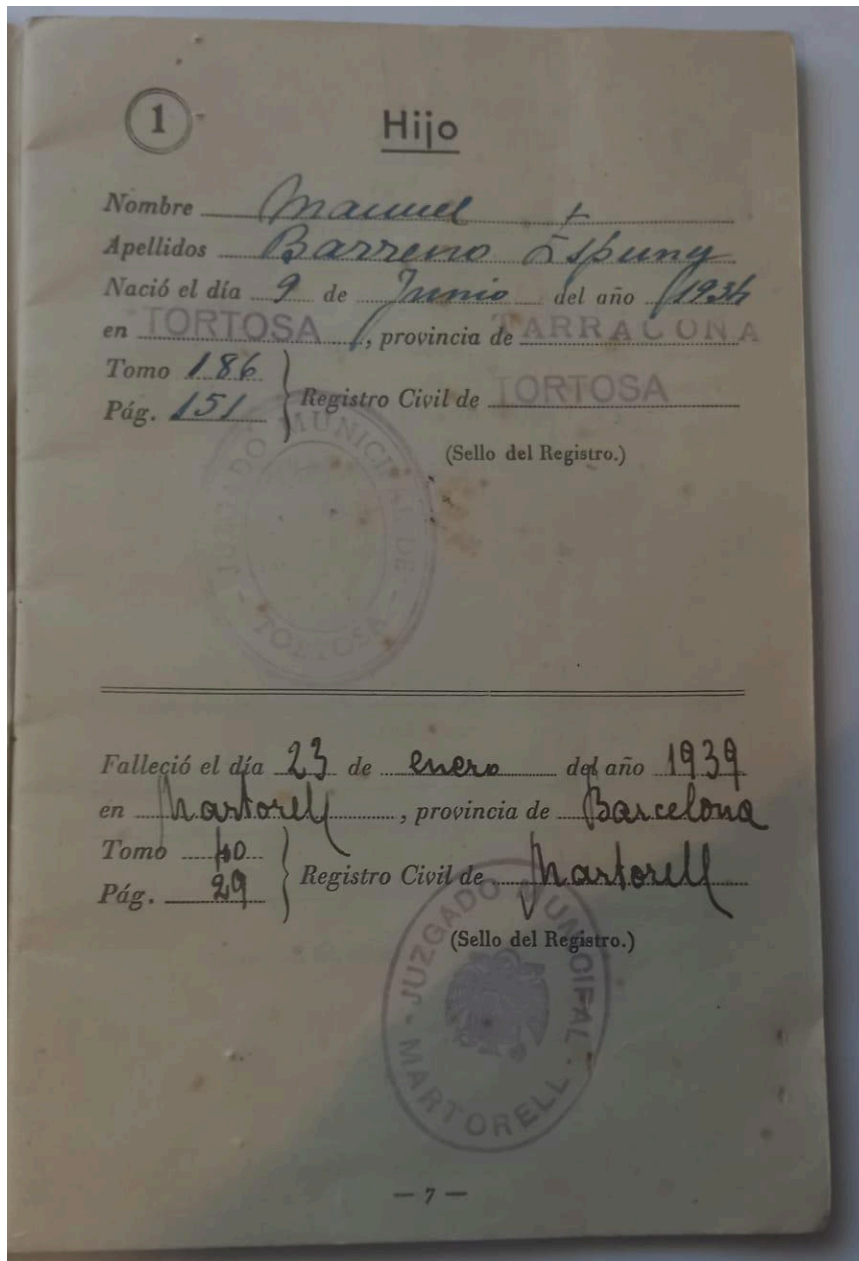 1
Hijo
Nombre Manuel +
Apellidos Barreno Espuny
Nació el día 9 de Junio del año 1934
en TORTOSA, provincia de TARRAGONA
Tomo 186
Pág. 151
Registro Civil de TORTOSA
(Sello del Registro.)
JUZGADO MUNICIPAL DE - TORTOSA -
Falleció el día 23 de enero del año 1939
en Martorell, provincia de Barcelona
Tomo 40
Pág. 29
Registro Civil de Martorell
(Sello del Registro.)
- JUZGADO MUNICIPAL - MARTORELL
— 7 —